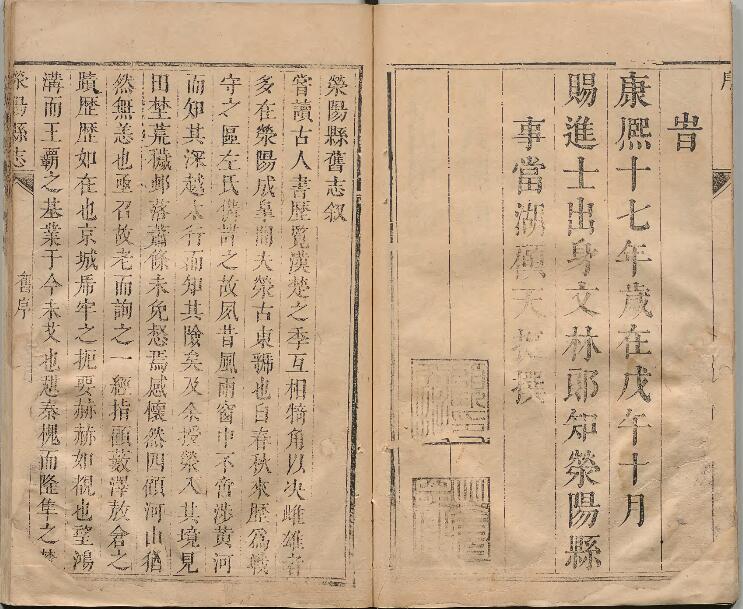 序
旹
康熙十七年歲在戊午十月
賜進士出身文林郎知滎陽縣
事當湖顧天挺撰
滎陽縣舊志叙
嘗讀古人書歷覽漢楚之季互相犄角以決雌雄者
多在滎陽成皋間夫滎古東虢也自春秋來歷為戰
守之區左氏備誌之故夙昔風雨窗中不啻涉黄河
而知其深越太行而知其險矣及余授滎入其境見
田埜荒穢邨落蕭條未免惄焉感懷然四顧河山猶
然無恙也亟召故老而詢之一經指顧藪澤敖倉之
蹟歷歷如在也京城虎牢之扼要赫赫如覩也望鴻
溝而王覇之基業于今未艾也憩秦槐而隆隼之
滎陽縣志
舊序